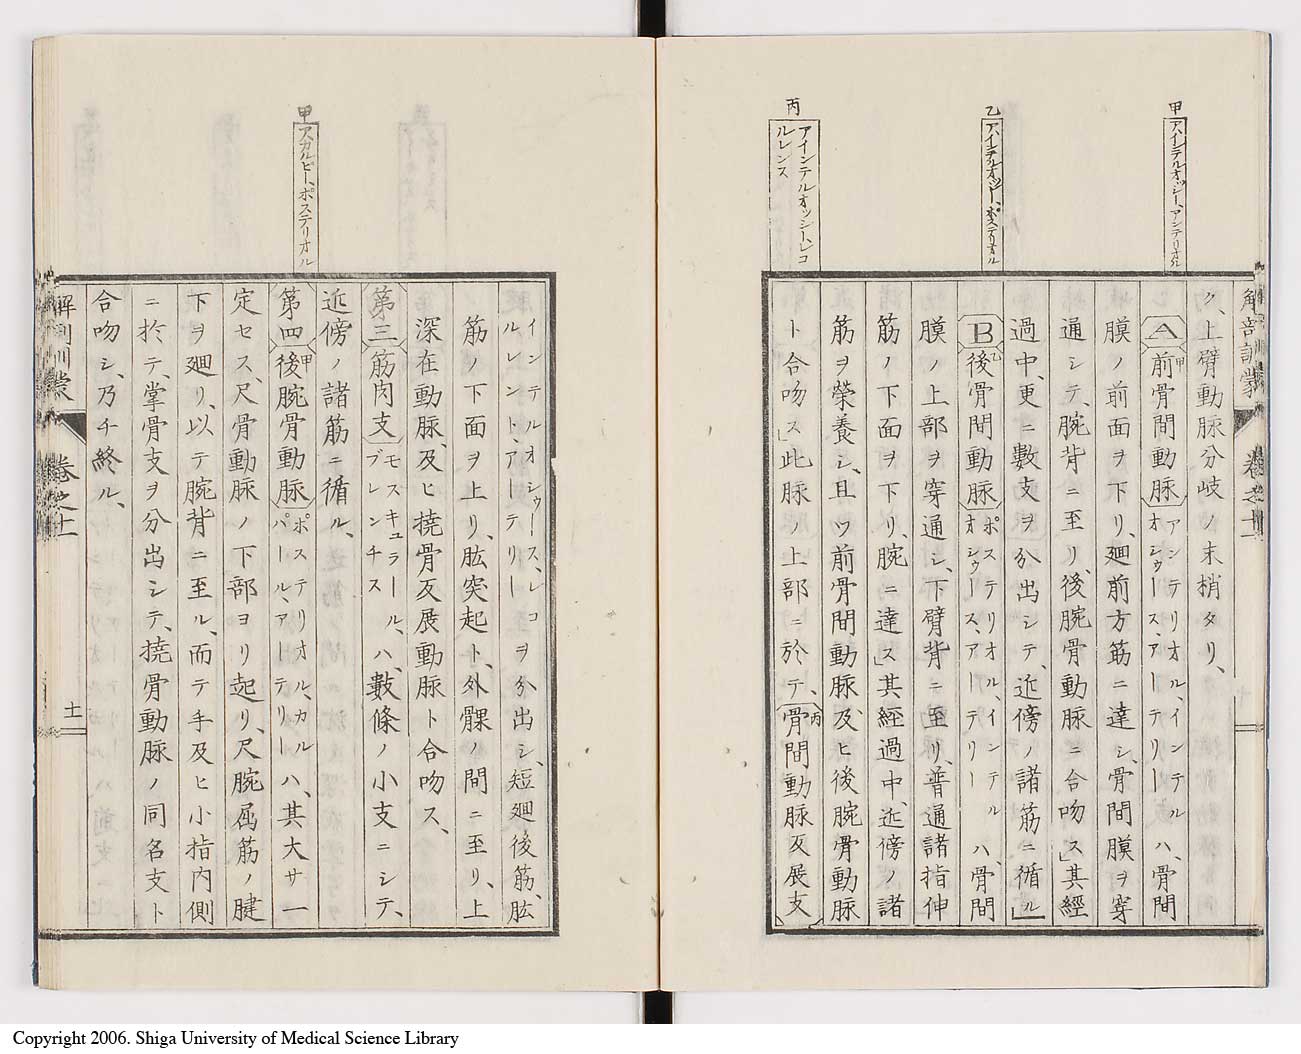 甲
アハインテルオッシー、アンテリオル
乙
アハインテルオッシー、ポステリオル
丙
アインテルオッシー、レコ
ルレンス
解剖訓蒙
卷之十一
ク、上臂動脉分岐ノ末梢タリ、
A 前骨間動脉 甲 アンテリオル、インテル オシウース、アーテリー ハ、骨間
膜ノ前面ヲ下リ、廻前方筋ニ達シ、骨間膜ヲ穿
通シテ、腕背ニ至リ、後腕骨動脉ニ合吻ス」其經
過中、更ニ數支ヲ分出シテ、近傍ノ諸筋ニ循ル」
B 後骨間動脉 乙 ポステリオル、インテル オシウース、アーテリー ハ、骨間
膜ノ上部ヲ穿通シ、下臂背ニ至リ、普通諸指伸
筋ノ下面ヲ下リ、腕ニ達ス」其經過中、近傍ノ諸
筋ヲ榮養シ、且ツ前骨間動脉、及ヒ後腕骨動脉
ト合吻ス」此脉ノ上部ニ於テ、骨間動脉反展支 丙
甲
アカルピー、ポステリオル
インテルオシウース、レコ ルレント、アーテリー ヲ分出シ、短廻後筋、肱
筋ノ下面ヲ上リ、肱突起ト、外髁ノ間ニ至リ、上
深在動脉、及ヒ撓骨反展動脉ト合吻ス、
第三 筋肉支 モスキュラール、ブレンチス ハ、數條ノ小支ニシテ、
近傍ノ諸筋ニ循ル、
第四 後腕骨動脉 甲 ポステリオル、カル パール、アーテリー ハ、其大サ一
定セス、尺骨動脉ノ下部ヨリ起リ、尺腕屈筋ノ腱
下ヲ廻リ、以テ腕背ニ至ル、而テ手及ヒ小指内側
ニ於テ、掌骨支ヲ分出シテ、撓骨動脉ノ同名支ト
合吻シ、乃チ終ル、
解剖訓蒙
卷之十一
十一